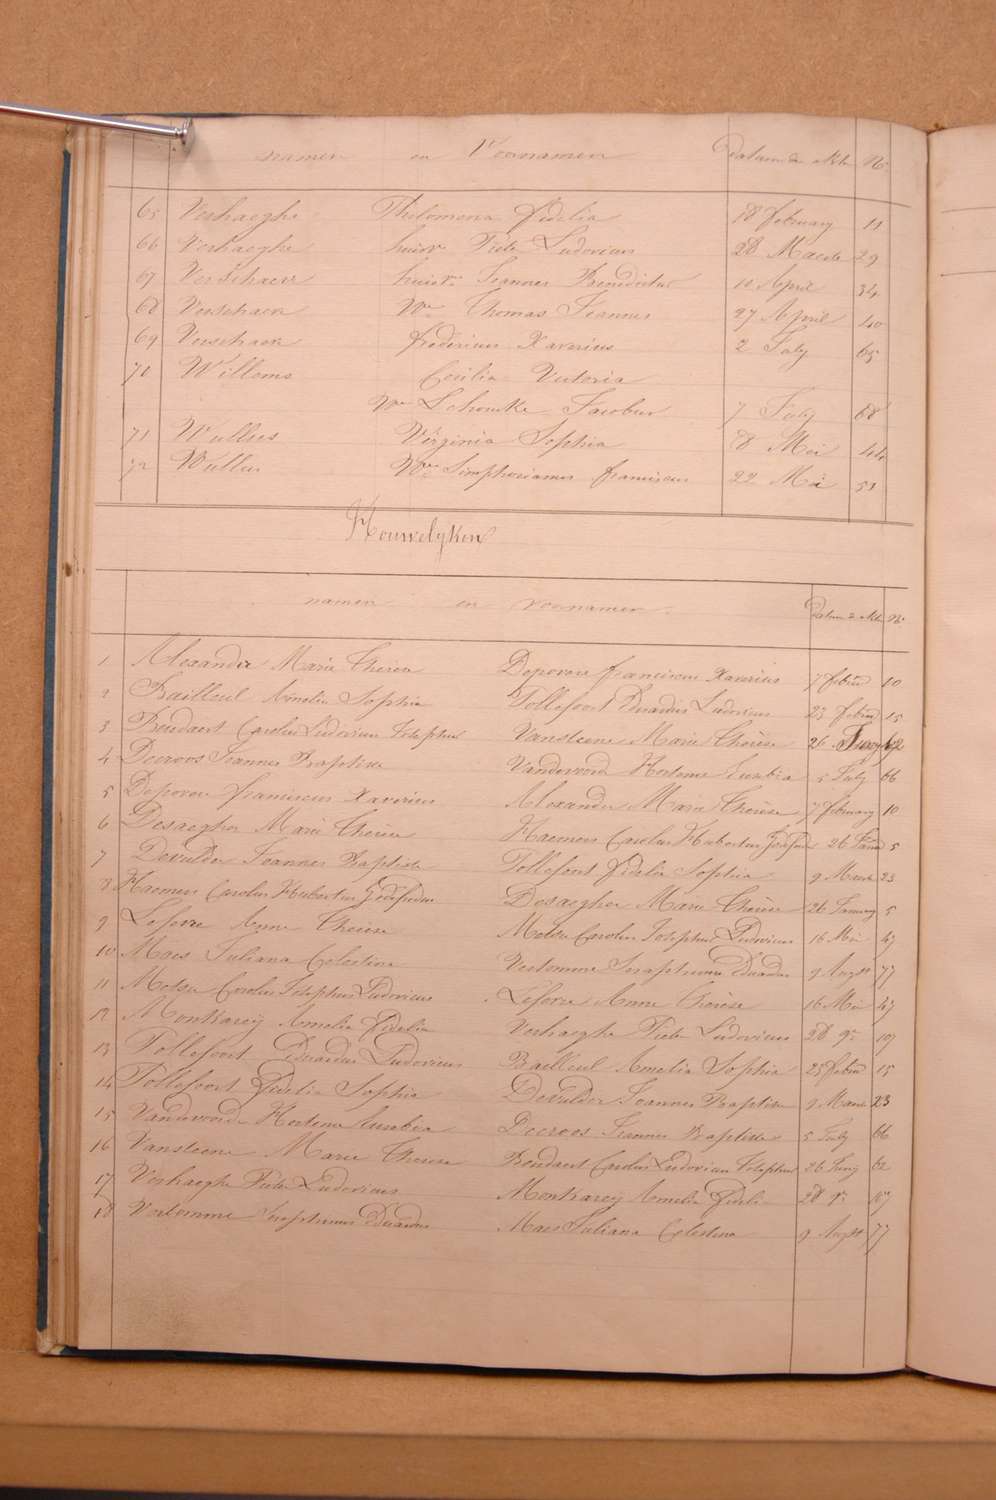 namen en Voornamen Datum der Akte No
65 Verhaeghe Philomena Fidelia 18 february 11
66 Verhaeghe huisv Piete Ludovicus 28 Maerte 29
67 Verschaeve huisv. Joannes Benedictus 10 April 34
68 Verschaeve We Thomas Joannes 27 April 40
69 Verschaeve frédéricus Xaverius 2 July 65
70 Willems Cecilia Victoria
We Schoucke Jacobus 7 July 68
71 Wullus Virginia Sophia 8 Mei 44
72 Wullus We Simphorianus franciscus 22 Mei 51
Houwelyken
namen en voornamen Datum der Akte No
1 Alexander Marie Therese Depovere franciscus Xaverius 7 febru 10
2 Bailleul Amelia Sophia Tollefoort Eduardus Ludovicus 25 febru 15
3 Beudaert Carolus Ludovicus Josephus Vansteene Marie Therèse 26 Juny 62
4 Decroos Joannes Baptiste Vandevoorde Hortense Eusebia 5 July 66
5 Depovere franciscus Xaverius Alexander Marie Therèse 7 february 10
6 Desaegher Marie Therèse Haemers Carolus Hubertus Godefridus 26 Janu 5
7 Devulder Joannes Baptiste Tollefoort Fidelia Sophia 9 Maerte 23
8 Haemers Carolus Hubertus Godefridus Desaegher Marie Therèse 26 January 5
9 Lefevre Anne Therèse Metsu Carolus Josephus Ludovicus 16 Mei 47
10 Maes Juliana Celestina Verlomme Seraphinus Eduardus 9 Augst 77
11 Metsu Carolus Josephus Ludovicus Lefevre Anne Therèse 16 Mei 47
12 Monkarey Amelia Fidelia Verhaeghe Piete Ludovicus 28 9r 107
13 Tollefoort Eduardus Ludovicus Bailleul Amelia Sophia 25 febru 15
14 Tollefoort Fidelia Sophia Devulder Joannes Baptiste 9 Maerte 23
15 Vandevoorde Hortense Eusebia Decroos Joannes Baptiste 5 July 66
16 Vansteene Marie Therese Beudaert Carolus Ludovicus Josephus 26 Juny 62
17 Verhaeghe Piete Ludovicus Monkarey Amelia Fidelia 28 9r 107
18 Verlomme Seraphinus Eduardus Maes Juliana Celestina 9 Augst 77